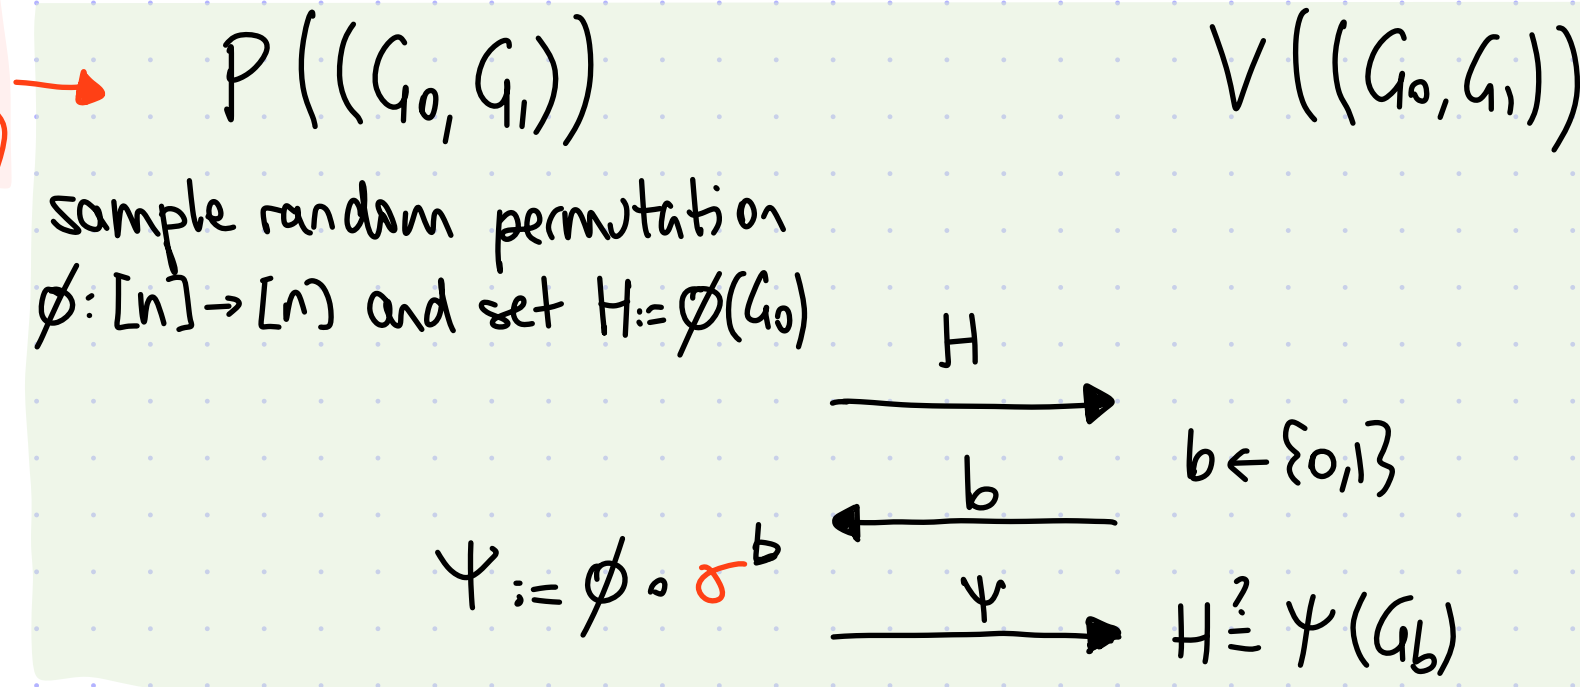 P((G₀, G₁))
V((G₀, G₁))
sample random permutation
ϕ: [n] → [n] and set H := ϕ(G₀)
H
b ← {0,1}
b
Ψ := ϕ ∘ σᵇ
Ψ
H ≟ Ψ(G_b)